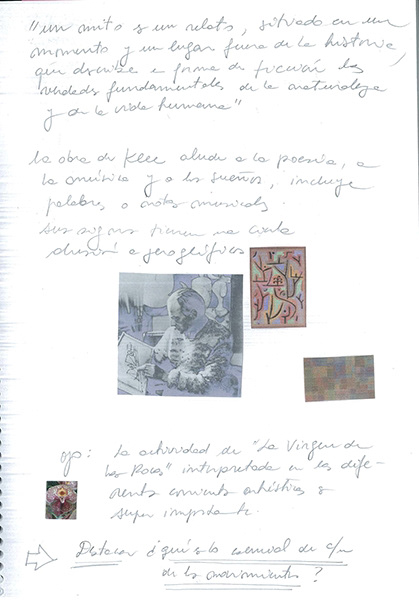 "un mito es un relato, situado en un
momento y un lugar fuera de la historia,
que describe en forma de ficción las
verdades fundamentales de la naturaleza
y de la vida humana"
la obra de Klee alude a la poesía, a
la música y a los sueños, incluye
palabras o notas musicales.
sus signos tienen una cierta
a jeroglíficos
ojo: La actividad de "La Virgen de
las Rocas" interpretada en las dife-
rentes corrientes artísticas es
super importante.
Destacar ¿qué es lo esencial de c/u
de los movimientos?